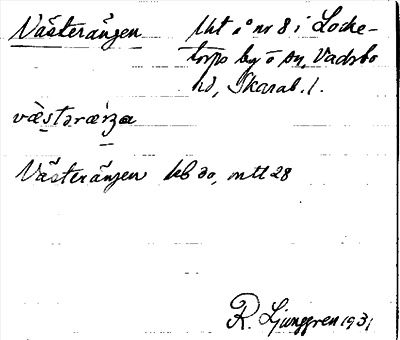 Västerängen Uht å nr 8 i Locke-
torps by o sn, Vadsbo
hd, Skarab. l.
væ̀stəræŋa
Västerängen kb do, mtl 28
R. Ljunggren 1931